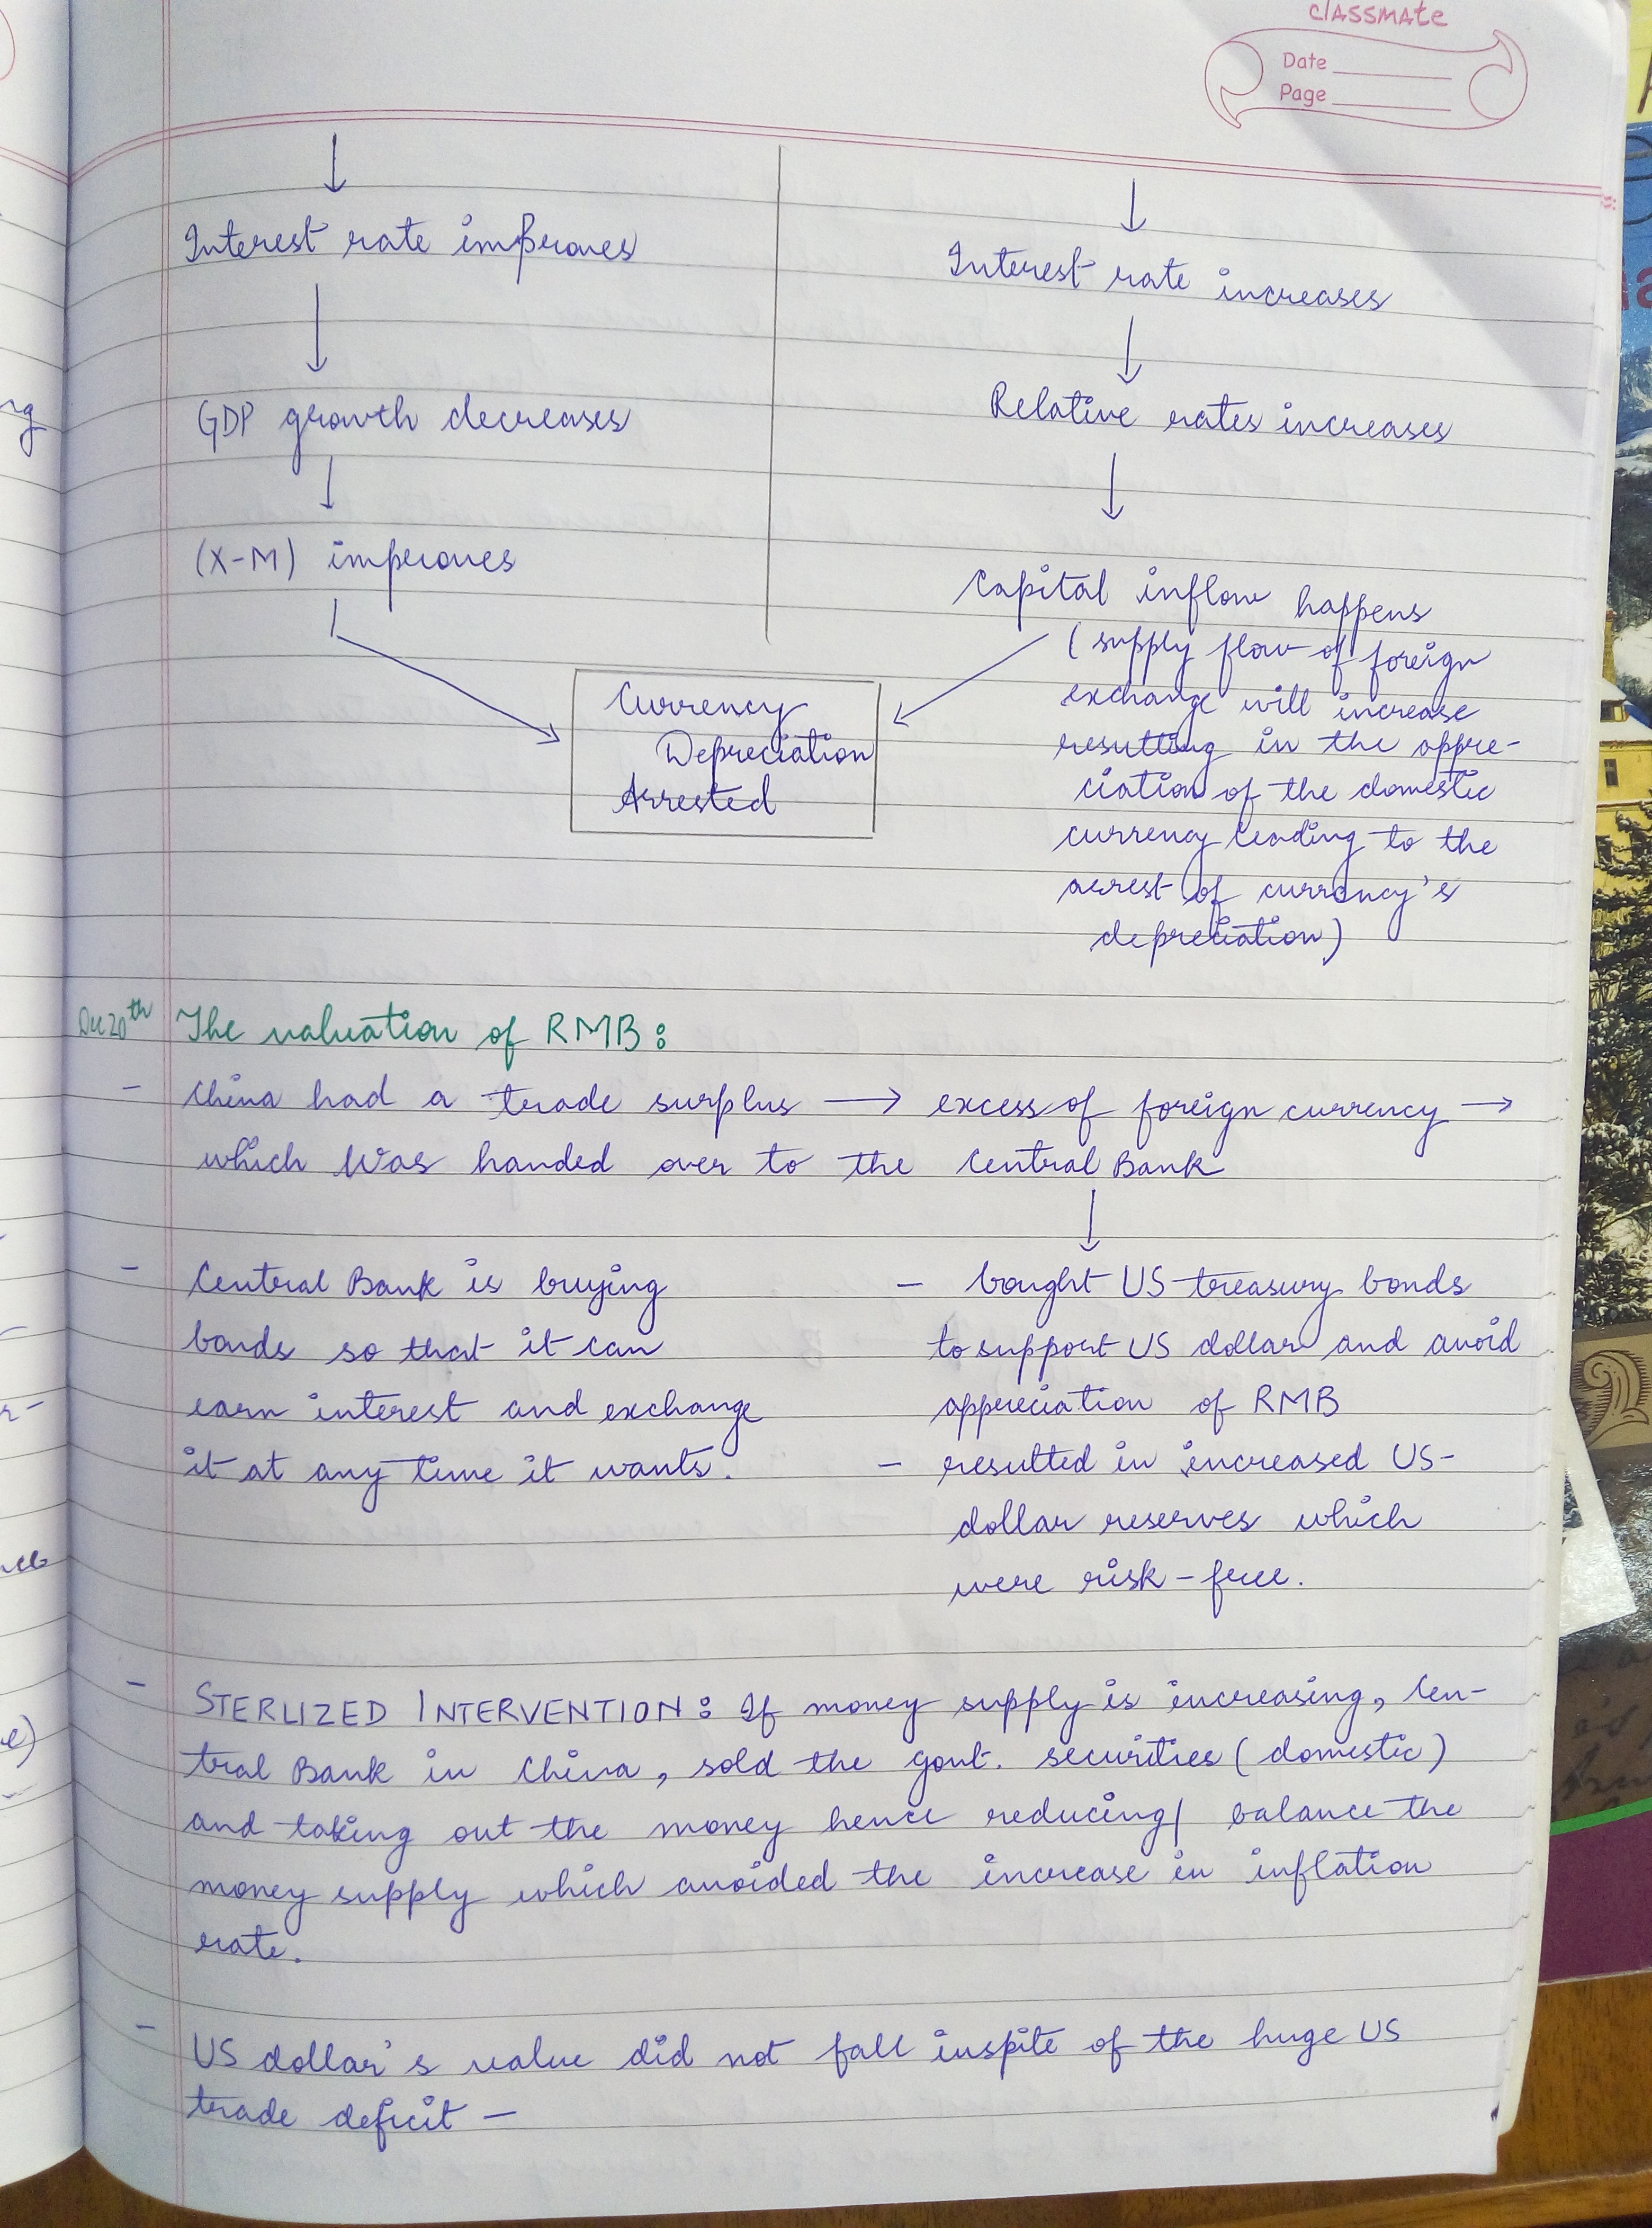 classmate
Date
Page
Interest rate improves
GDP growth decreases
(X-M) improves
Interest rate increases
Relative rates increases
Capital inflow happens
(supply flow of foreign
exchange will increase
resulting in the appre-
ciation of the domestic
currency leading to the
arrest of currency's
depreciation)
Currency
Depreciation
Arrested
Dec 20th The valuation of RMB:
- China had a trade surplus → excess of foreign currency →
which was handed over to the Central Bank
- Central Bank is buying
bonds so that it can
earn interest and exchange
it at any time it wants.
- bought US treasury bonds
to support US dollar and avoid
appreciation of RMB
- resulted in increased US-
dollar reserves which
were risk-free.
- STERLIZED INTERVENTION: If money supply is increasing, Cen-
tral Bank in China, sold the govt. securities (domestic)
and taking out the money hence reducing/ balance the
money supply which avoided the increase in inflation
rate.
- US dollar's value did not fall inspite of the huge US
trade deficit -